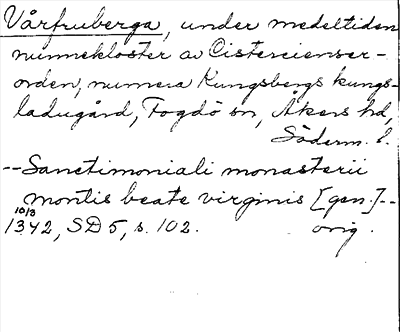 Vårfruberga, under medeltiden
nunnekloster av Cistercienser-
orden, numera Kungsbergs kungs-
ladugård, Fogdö sn, Åkers hd,
Söderm. l.
--Sanctimoniali monasterii
montis beate virginis [gen.]--
10/3
1342, SD 5, s. 102. orig.